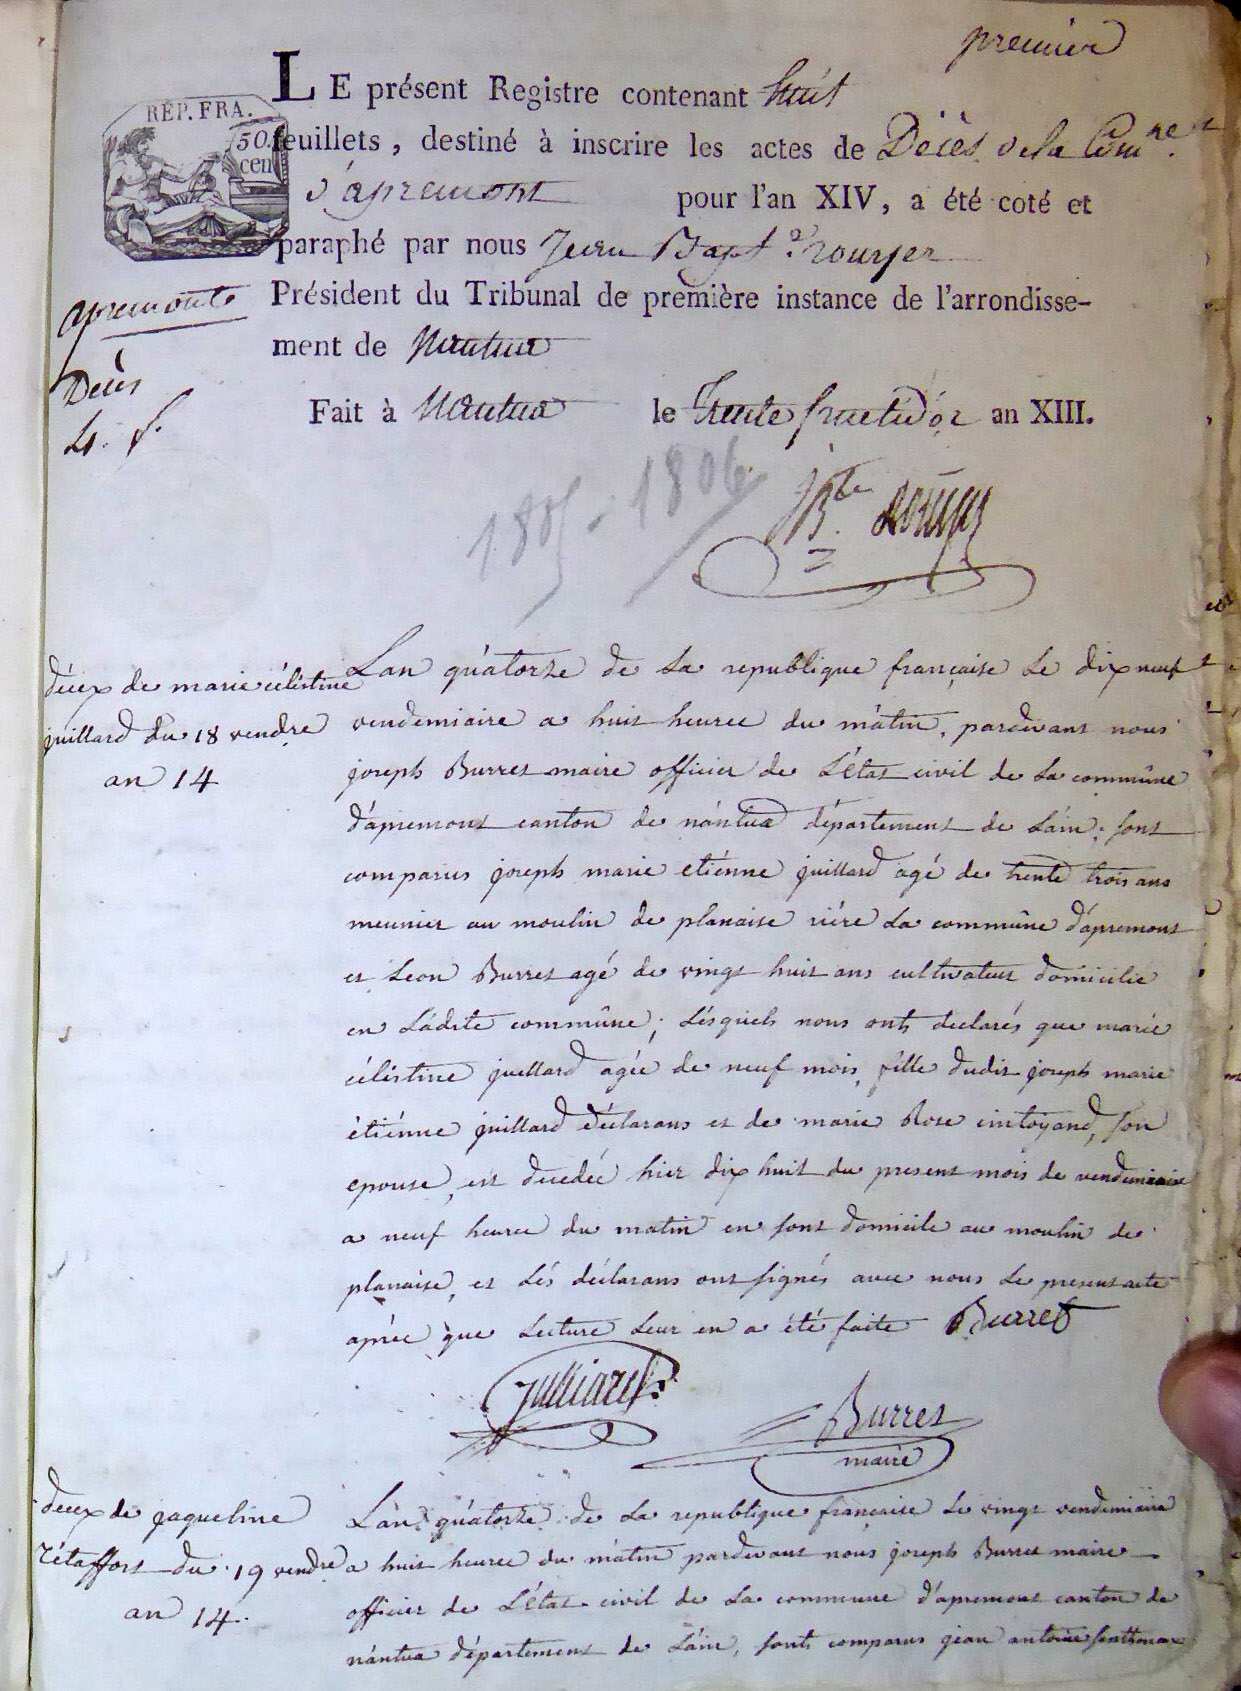 premier
LE présent Registre contenant huit
REP. FRA.
50.
cen
feuillets, destiné à inscrire les actes de Décès de la Com.ne
d'apremont pour l'an XIV, a été coté et
paraphé par nous Jean Bapt.e Rouyer
Président du Tribunal de première instance de l'arrondisse-
ment de Nantua
apremont
Décès
Fait à Nantua le trente fructidor an XIII.
1805-1806
décex de marie célestine
juillard du 18 vendre
an 14
Lan quatorze de la republique française le dix neuf
vendemiaire a huit heures du matin, pardevant nous
joseph Burret maire officier de L'état civil de la commûne
d'apremont canton de nántua département de Láin; sont
comparus joseph marie etiénne juillard agé de trente trois ans
meunier au moulin de planaise riére la commûne d'apremont
et Leon Burret agé de vingt huit ans cultivateur domicilié
en Ladite commûne; Lésquels nous onts declarés que marie
célestine juillard agée de neuf mois, fille dudit joseph marie
étiénne juillard déclarans et de marie Rose cintoyand, son
epouse, est decedée hier dix huit du present mois de vendemiaire
a neuf heures du matin en sont domicile au moulin de
planaise, et Lés déclarans ont signés avec nous Le present acte
aprés que Lecture Leur en a été faite Burret
Julliard
Burret
maire
decex de jaqueline
rétaffort du 19 vendre
an 14.
Lan quatorze de La republique française Le vingt vendemiaire
a huit heures du matin pardevant nous joseph Burret maire
officier de L'état civil de La commune d'apremont canton de
nántua département de Láin, sonts comparus jean antoine